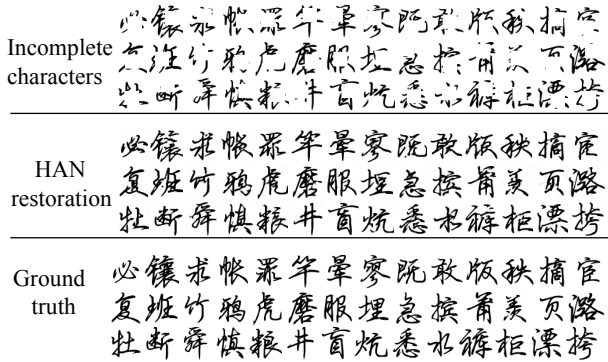 Incomplete
characters
必镶求帐罪竿晕寥既敢版秩摘宦
复班竹鸦虎磨服埋急摈莆羡页潞
牡断舜慎粮井盲炕悉水裤柜漂挎
HAN
restoration
必镶求帐罪竿晕寥既敢版秩摘宦
复班竹鸦虎磨服埋急摈莆羡页潞
牡断舜慎粮井盲炕悉水裤柜漂挎
Ground
truth
必镶求帐罪竿晕寥既敢版秩摘宦
复班竹鸦虎磨服埋急摈莆羡页潞
牡断舜慎粮井盲炕悉水裤柜漂挎